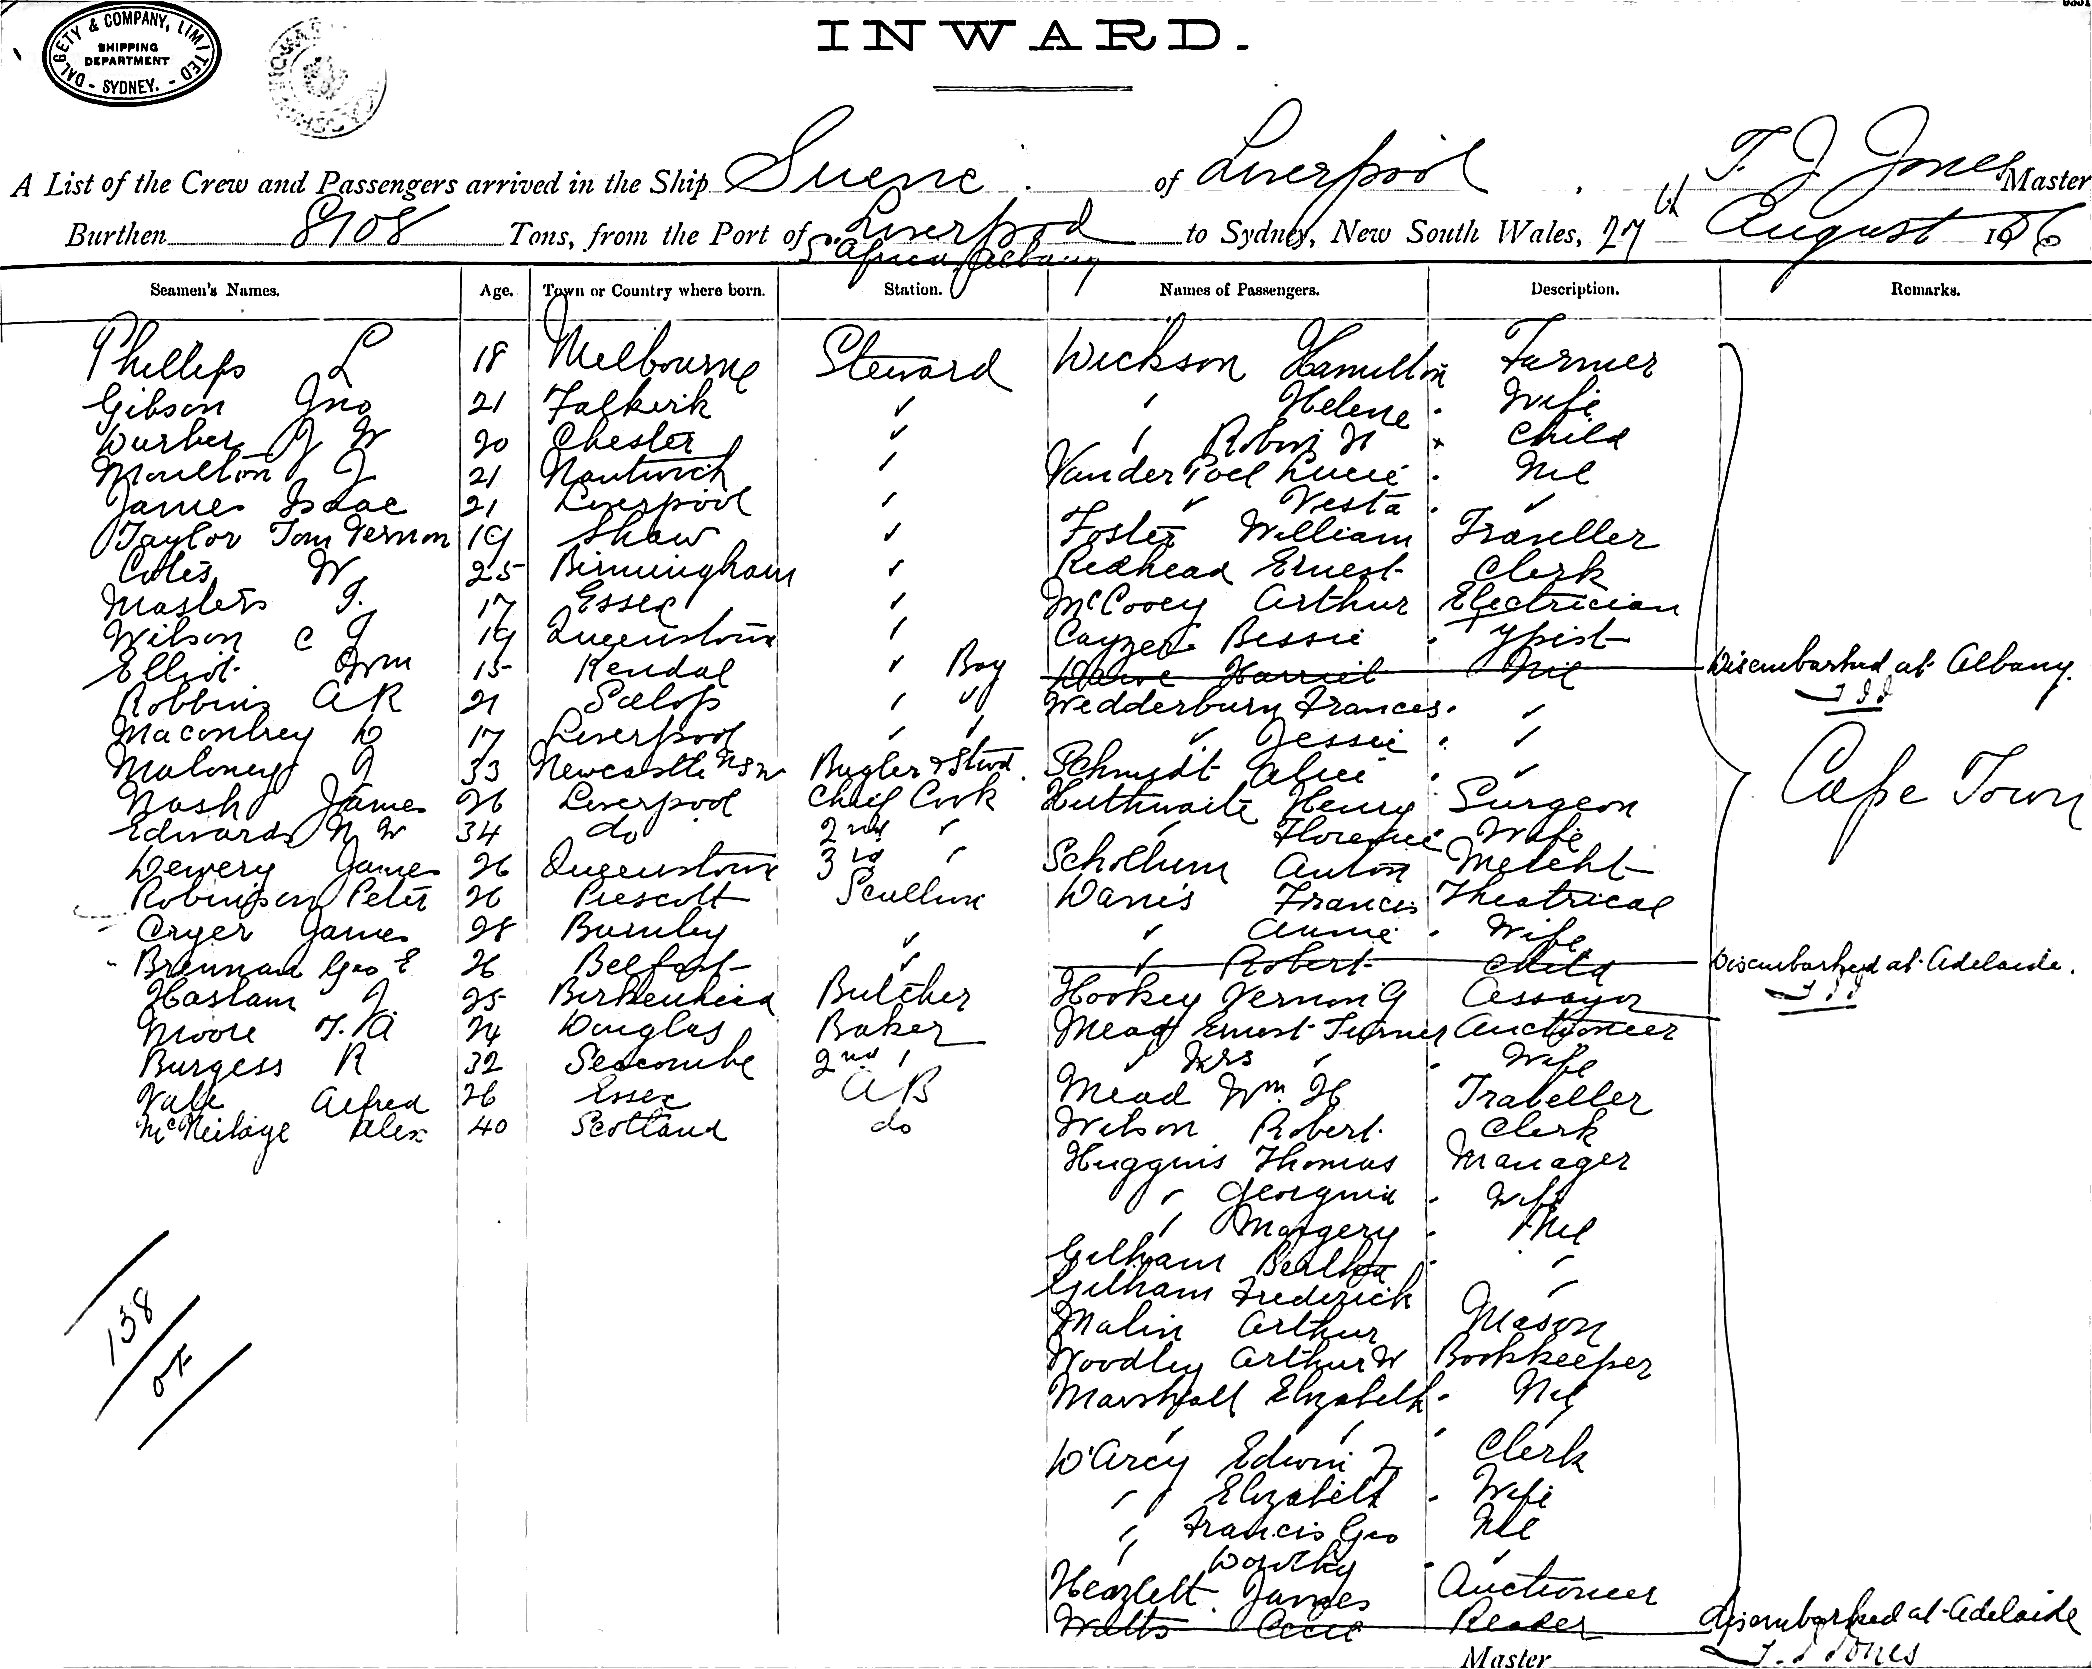 DALGETY & COMPANY, LIMITED
SHIPPING
DEPARTMENT
- SYDNEY. -
INWARD.
A List of the Crew and Passengers arrived in the Ship Suevic of Liverpool T. J. Jones Master
Burthen 8108 Tons, from the Port of Liverpool to Sydney, New South Wales, 27th August
Africa Albany
Seamen's Names. Age. Town or Country where born. Station. Names of Passengers. Description. Remarks.
Phillips L 18 Melbourne Steward Wickson Hamilton Farmer
Gibson Jno 21 Falkirk " " Helene Wife
J W 20 Chester " " Robin H Child
Moulton J 21 Nantwich " Vander Poel Lucie Nil
James Isaac 21 Liverpool " " Vesta "
Taylor Tom Vernon 19 Shaw " Foster William Traveller
Coles W 25 Birmingham " Redhead Ernest Clerk
Masters T. 17 Essex " McCovey Arthur Electrician
Wilson C J 19 Queenstown " Cayzer Bessie Typist
Elliot Wm 15 Kendal " Boy Harriet Nil Disembarked at Albany.
TJJ
Robbins A R 21 Salop " " Wedderburn Frances "
D 17 Liverpool " " " Jessie "
Maloney J 33 Newcastle NSW Bugler & Stwd. Schmidt Alice "
Cape Town
Nash James 26 Liverpool Chief Cook Huthwaite Henry Surgeon
Edwards N W 34 do 2nd " " Florence Wife
Dewery James 26 Queenstown 3rd " Schollum Anton Mercht
Robinson Peter 26 Prescott Scullion Francis Theatrical
Cryer James 28 Burnley " " Annie Wife
Brennan Geo E 26 Belfast " " Robert Child Disembarked at Adelaide.
TJJ
Haslam J 25 Birkenhead Butcher Hookey Vernon G Assayor
Moore T. A 24 Douglas Baker Mead Ernest Turner Auctioneer
Burgess R 32 Seacombe 2nd " " Mrs " Wife
Vale Alfred 26 Essex AB Mead Wm. H Traveller
McNeilage Alex 40 Scotland do Wilson Robert Clerk
Huggins Thomas Manager
" Georgina Wife
" Margery Nil
Gilham Bertha "
Gilham Frederick "
Malin Arthur Mason
Woodley Arthur W Bookkeeper
Marshall Elizabeth Nil
" " "
D'Arcy Edwin F Clerk
" Elizabeth Wife
138
" Francis Geo Nil
" Dorothy "
Heazlett James Auctioneer
Watts Cecil Reader Disembarked at Adelaide
T. J Jones
Master